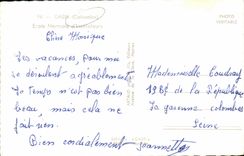 CAEN (Calvados)
École Normale d'Instituteurs
PHOTO
VÉRITABLE
Chère Monique
Les vacances, pour moi
se déroulent agréablement
Le temps n'est pas bien
beau mais cela ne
fait rien.
Bien cordialement Jeannette
Mademoiselle Coudray
198 de la République
La garenne colombes
Seine